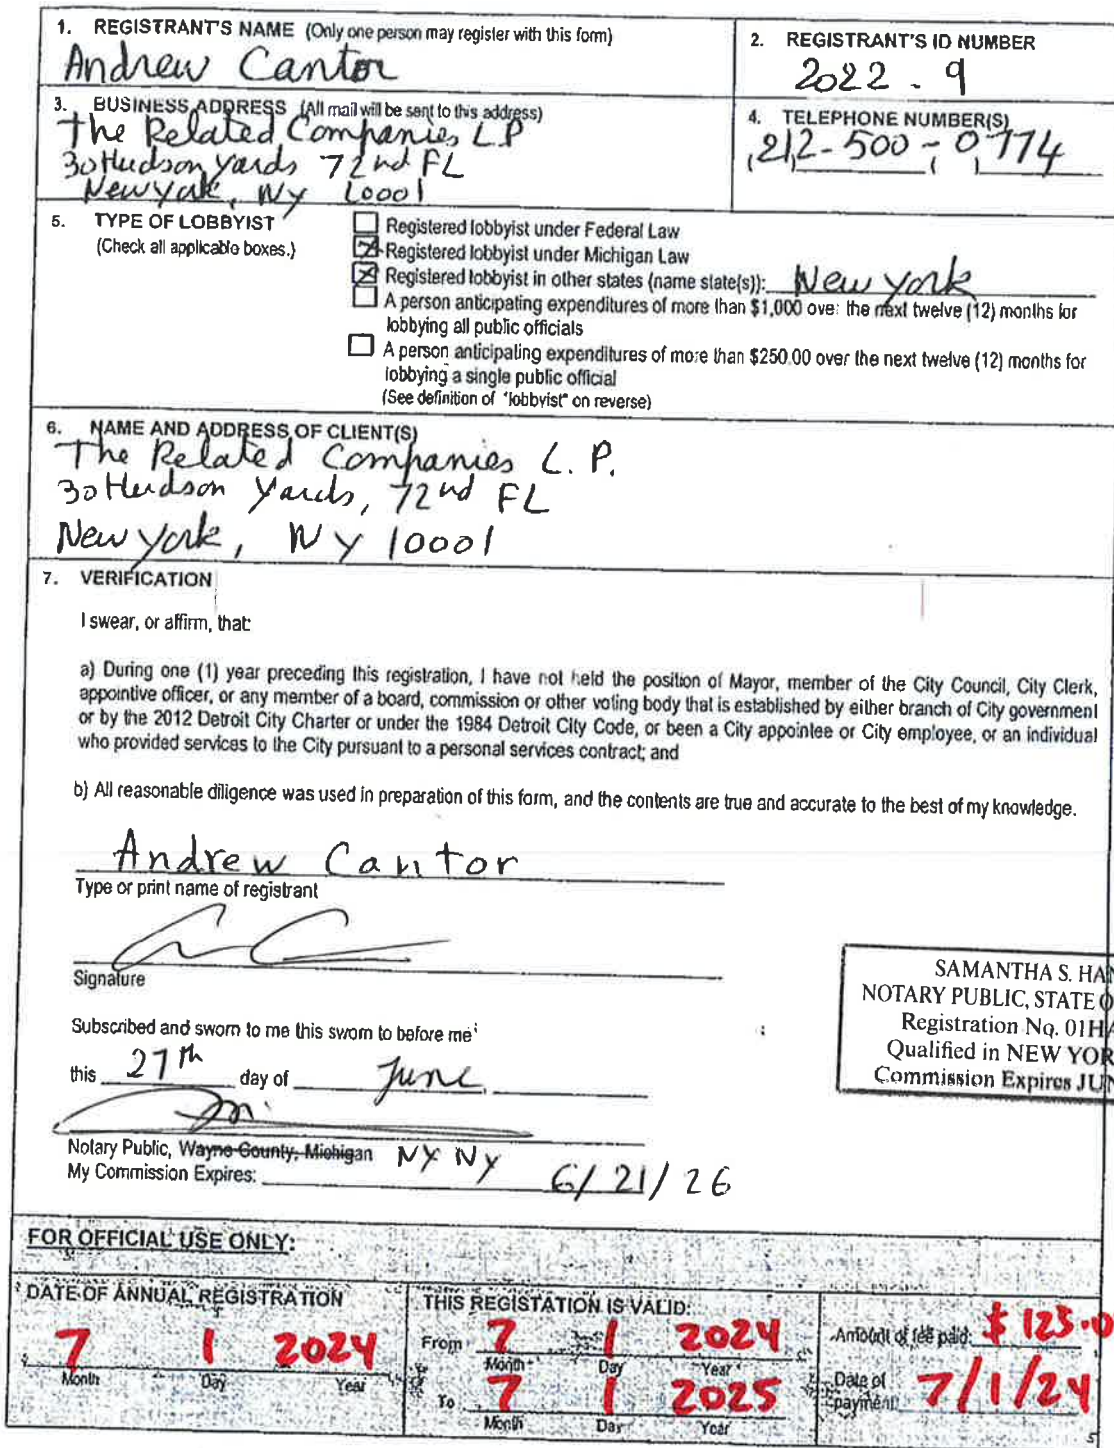 1. REGISTRANT'S NAME (Only one person may register with this form)
Andrew Cantor
2. REGISTRANT'S ID NUMBER
2022-9
3. BUSINESS ADDRESS (All mail will be sent to this address)
The Related Companies LP
30 Hudson Yards 72nd FL
New York, NY 10001
4. TELEPHONE NUMBER(S)
212-500-0774
5. TYPE OF LOBBYIST
(Check all applicable boxes.)
Registered lobbyist under Federal Law
Registered lobbyist under Michigan Law
Registered lobbyist in other states (name state(s)): New York
A person anticipating expenditures of more than $1,000 over the next twelve (12) months for
lobbying all public officials
A person anticipating expenditures of more than $250.00 over the next twelve (12) months for
lobbying a single public official
(See definition of "lobbyist" on reverse)
6. NAME AND ADDRESS OF CLIENT(S)
The Related Companies L.P.
30 Hudson Yards, 72nd FL
New York, NY 10001
7. VERIFICATION
I swear, or affirm, that:
a) During one (1) year preceding this registration, I have not held the position of Mayor, member of the City Council, City Clerk,
appointive officer, or any member of a board, commission or other voting body that is established by either branch of City government
or by the 2012 Detroit City Charter or under the 1984 Detroit City Code, or been a City appointee or City employee, or an individual
who provided services to the City pursuant to a personal services contract; and
b) All reasonable diligence was used in preparation of this form, and the contents are true and accurate to the best of my knowledge.
Andrew Cantor
Type or print name of registrant
Signature
Subscribed and sworn to me this sworn to before me
this 27th day of June
SAMANTHA S. HAN
NOTARY PUBLIC, STATE O
Registration No. 01HA
Qualified in NEW YOR
Commission Expires JUN
Notary Public, Wayne County, Michigan NY NY
My Commission Expires: 6/21/26
FOR OFFICIAL USE ONLY:
DATE OF ANNUAL REGISTRATION
7 1 2024
Month Day Year
THIS REGISTATION IS VALID:
From 7 1 2024
Month Day Year
To 7 1 2025
Month Day Year
Amount of fee paid: $125.0
Date of
payment: 7/1/24
5